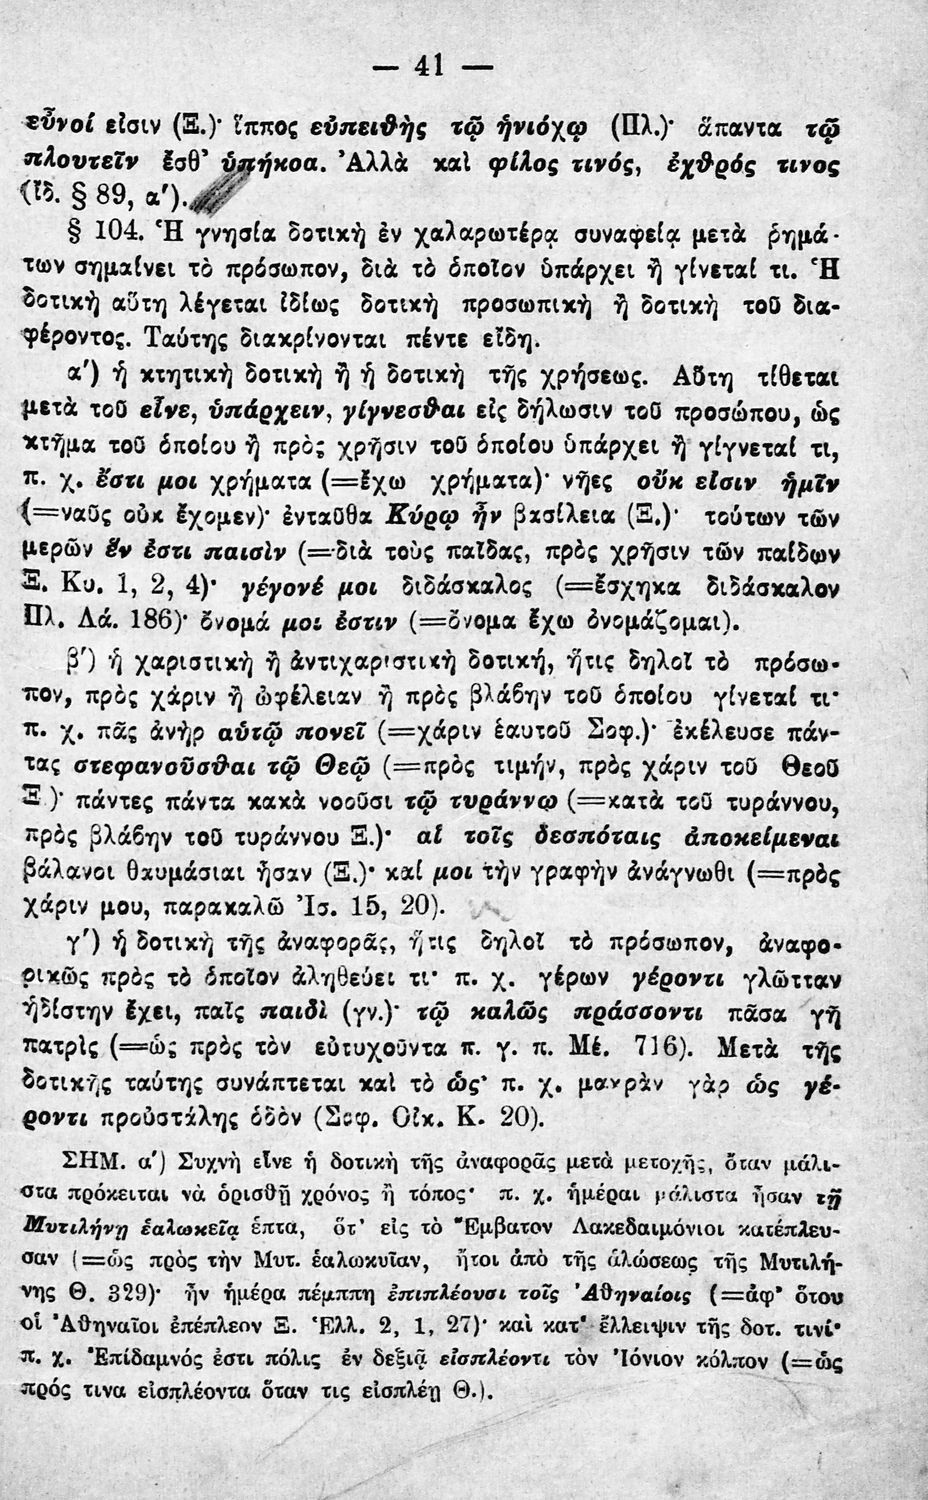 — 41 —
εὖνοί εἰσιν (Ξ.)· ἵππος εὐπειθὴς τῷ ἡνιόχῳ (Πλ.)· ἅπαντα τῷ
πλουτεῖν ἔσθ' ὑπήκοα. Ἀλλὰ καὶ φίλος τινός, ἐχθρός τινος
(ἰδ. § 89, α').
§ 104. Ἡ γνησία δοτικὴ ἐν χαλαρωτέρᾳ συναφείᾳ μετὰ ῥημά-
των σημαίνει τὸ πρόσωπον, διὰ τὸ ὁποῖον ὑπάρχει ἢ γίνεταί τι. Ἡ
δοτικὴ αὕτη λέγεται ἰδίως δοτικὴ προσωπικὴ ἢ δοτικὴ τοῦ δια-
φέροντος. Ταύτης διακρίνονται πέντε εἴδη.
α') ἡ κτητικὴ δοτικὴ ἢ ἡ δοτικὴ τῆς χρήσεως. Αὕτη τίθεται
μετὰ τοῦ εἶνε, ὑπάρχειν, γίγνεσθαι εἰς δήλωσιν τοῦ προσώπου, ὡς
κτῆμα τοῦ ὁποίου ἢ πρὸς χρῆσιν τοῦ ὁποίου ὑπάρχει ἢ γίγνεταί τι,
π. χ. ἔστι μοι χρήματα (=ἔχω χρήματα)· νῆες οὔκ εἰσιν ἡμῖν
(=ναῦς οὐκ ἔχομεν)· ἐνταῦθα Κύρῳ ἦν βασίλεια (Ξ.)· τούτων τῶν
μερῶν ἕν ἐστι παισὶν (=διὰ τοὺς παῖδας, πρὸς χρῆσιν τῶν παίδων
Ξ. Κυ. 1, 2, 4)· γέγονέ μοι διδάσκαλος (=ἔσχηκα διδάσκαλον
Πλ. Λά. 186)· ὄνομά μοι ἐστιν (=ὄνομα ἔχω ὀνομάζομαι).
β') ἡ χαριστικὴ ἢ ἀντιχαριστικὴ δοτική, ἥτις δηλοῖ τὸ πρόσω-
πον, πρὸς χάριν ἢ ὠφέλειαν ἢ πρὸς βλάβην τοῦ ὁποίου γίνεταί τι·
π. χ. πᾶς ἀνὴρ αὑτῷ πονεῖ (=χάριν ἑαυτοῦ Σοφ.)· ἐκέλευσε πάν-
τας στεφανοῦσθαι τῷ Θεῷ (=πρὸς τιμήν, πρὸς χάριν τοῦ Θεοῦ
Ξ.)· πάντες πάντα κακὰ νοοῦσι τῷ τυράννῳ (=κατὰ τοῦ τυράννου,
πρὸς βλάβην τοῦ τυράννου Ξ.)· αἱ τοῖς δεσπόταις ἀποκείμεναι
βάλανοι θαυμάσιαι ἦσαν (Ξ.)· καί μοι τὴν γραφὴν ἀνάγνωθι (=πρὸς
χάριν μου, παρακαλῶ Ἰσ. 15, 20).
γ') ἡ δοτικὴ τῆς ἀναφορᾶς, ἥτις δηλοῖ τὸ πρόσωπον, ἀναφο-
ρικῶς πρὸς τὸ ὁποῖον ἀληθεύει τι· π. χ. γέρων γέροντι γλῶτταν
ἡδίστην ἔχει, παῖς παιδὶ (γν.)· τῷ καλῶς πράσσοντι πᾶσα γῆ
πατρὶς (=ὡς πρὸς τὸν εὐτυχοῦντα π. γ. π. Μέ. 716). Μετὰ τῆς
δοτικῆς ταύτης συνάπτεται καὶ τὸ ὡς· π. χ. μακρὰν γὰρ ὡς γέ-
ροντι προὐστάλης ὁδὸν (Σοφ. Οἰκ. Κ. 20).
ΣΗΜ. α') Συχνὴ εἶνε ἡ δοτικὴ τῆς ἀναφορᾶς μετὰ μετοχῆς, ὅταν μάλι-
στα πρόκειται νὰ ὁρισθῇ χρόνος ἢ τόπος· π. χ. ἡμέραι μάλιστα ἦσαν τῇ
Μυτιλήνῃ ἑαλωκείᾳ ἑπτα, ὅτ' εἰς τὸ Ἔμβατον Λακεδαιμόνιοι κατέπλευ-
σαν (=ὡς πρὸς τὴν Μυτ. ἑαλωκυῖαν, ἤτοι ἀπὸ τῆς ἁλώσεως τῆς Μυτιλή-
νης Θ. 329)· ἦν ἡμέρα πέμπτη ἐπιπλέουσι τοῖς Ἀθηναίοις (=ἀφ' ὅτου
οἱ Ἀθηναῖοι ἐπέπλεον Ξ. Ἑλλ. 2, 1, 27)· καὶ κατ' ἔλλειψιν τῆς δοτ. τινί·
π. χ. Ἐπίδαμνός ἐστι πόλις ἐν δεξιᾷ εἰσπλέοντι τὸν Ἰόνιον κόλπον (=ὡς
πρός τινα εἰσπλέοντα ὅταν τις εἰσπλέῃ Θ.).